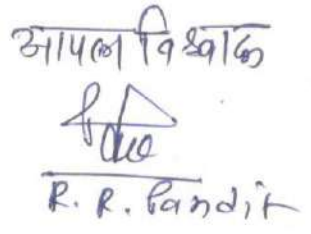 आपला विश्वासू
R. R. Pandit